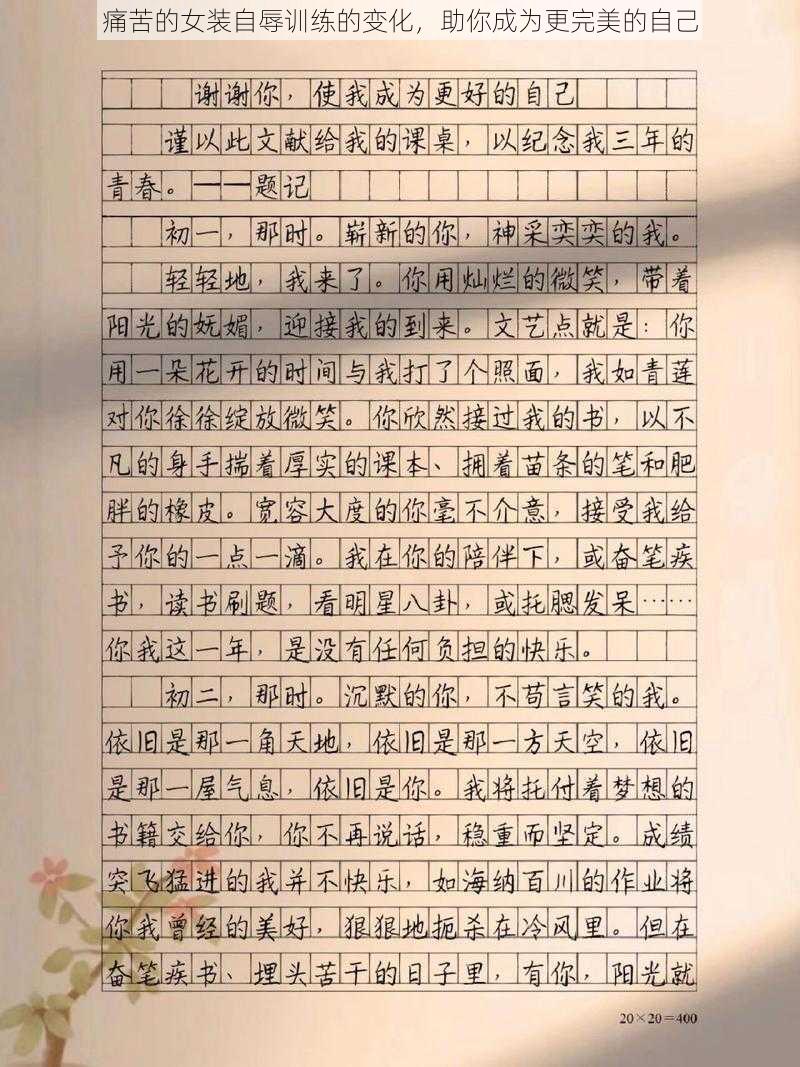 痛苦的女装自辱训练的变化，助你成为更完美的自己
谢谢你，使我成为更好的自己
谨以此文献给我的课桌，以纪念我三年的
青春。——题记
初一，那时。崭新的你，神采奕奕的我。
轻轻地，我来了。你用灿烂的微笑，带着
阳光的妩媚，迎接我的到来。文艺点就是：你
用一朵花开的时间与我打了个照面，我如青莲
对你徐徐绽放微笑。你欣然接过我的书，以不
凡的身手揣着厚实的课本、拥着苗条的笔和肥
胖的橡皮。宽容大度的你毫不介意，接受我给
予你的一点一滴。我在你的陪伴下，或奋笔疾
书，读书刷题，看明星八卦，或托腮发呆……
你我这一年，是没有任何负担的快乐。
初二，那时。沉默的你，不苟言笑的我。
依旧是那一角天地，依旧是那一方天空，依旧
是那一屋气息，依旧是你。我将托付着梦想的
书籍交给你，你不再说话，稳重而坚定。成绩
突飞猛进的我并不快乐，如海纳百川的作业将
你我曾经的美好，狠狠地扼杀在冷风里。但在
奋笔疾书、埋头苦干的日子里，有你，阳光就
20×20=400